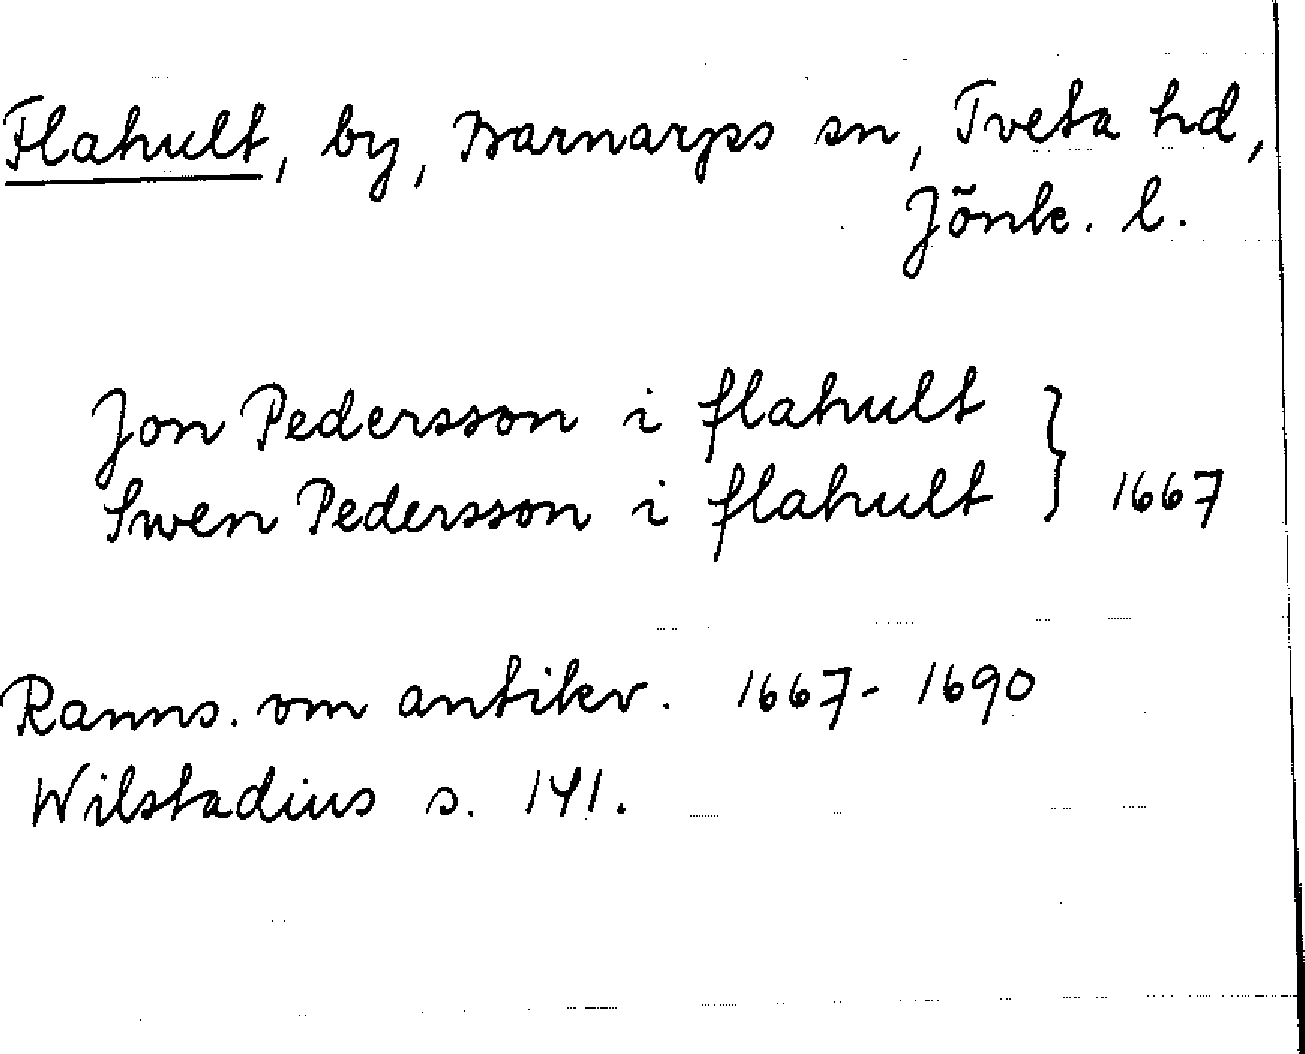 Flahult, by, Barnarps sn, Tveta hd,
Jönk. l.
Jon Pedersson i flahult } 1667
Swen Pedersson i flahult
Ranns. om antikv. 1667-1690
Wilstadius s. 141.